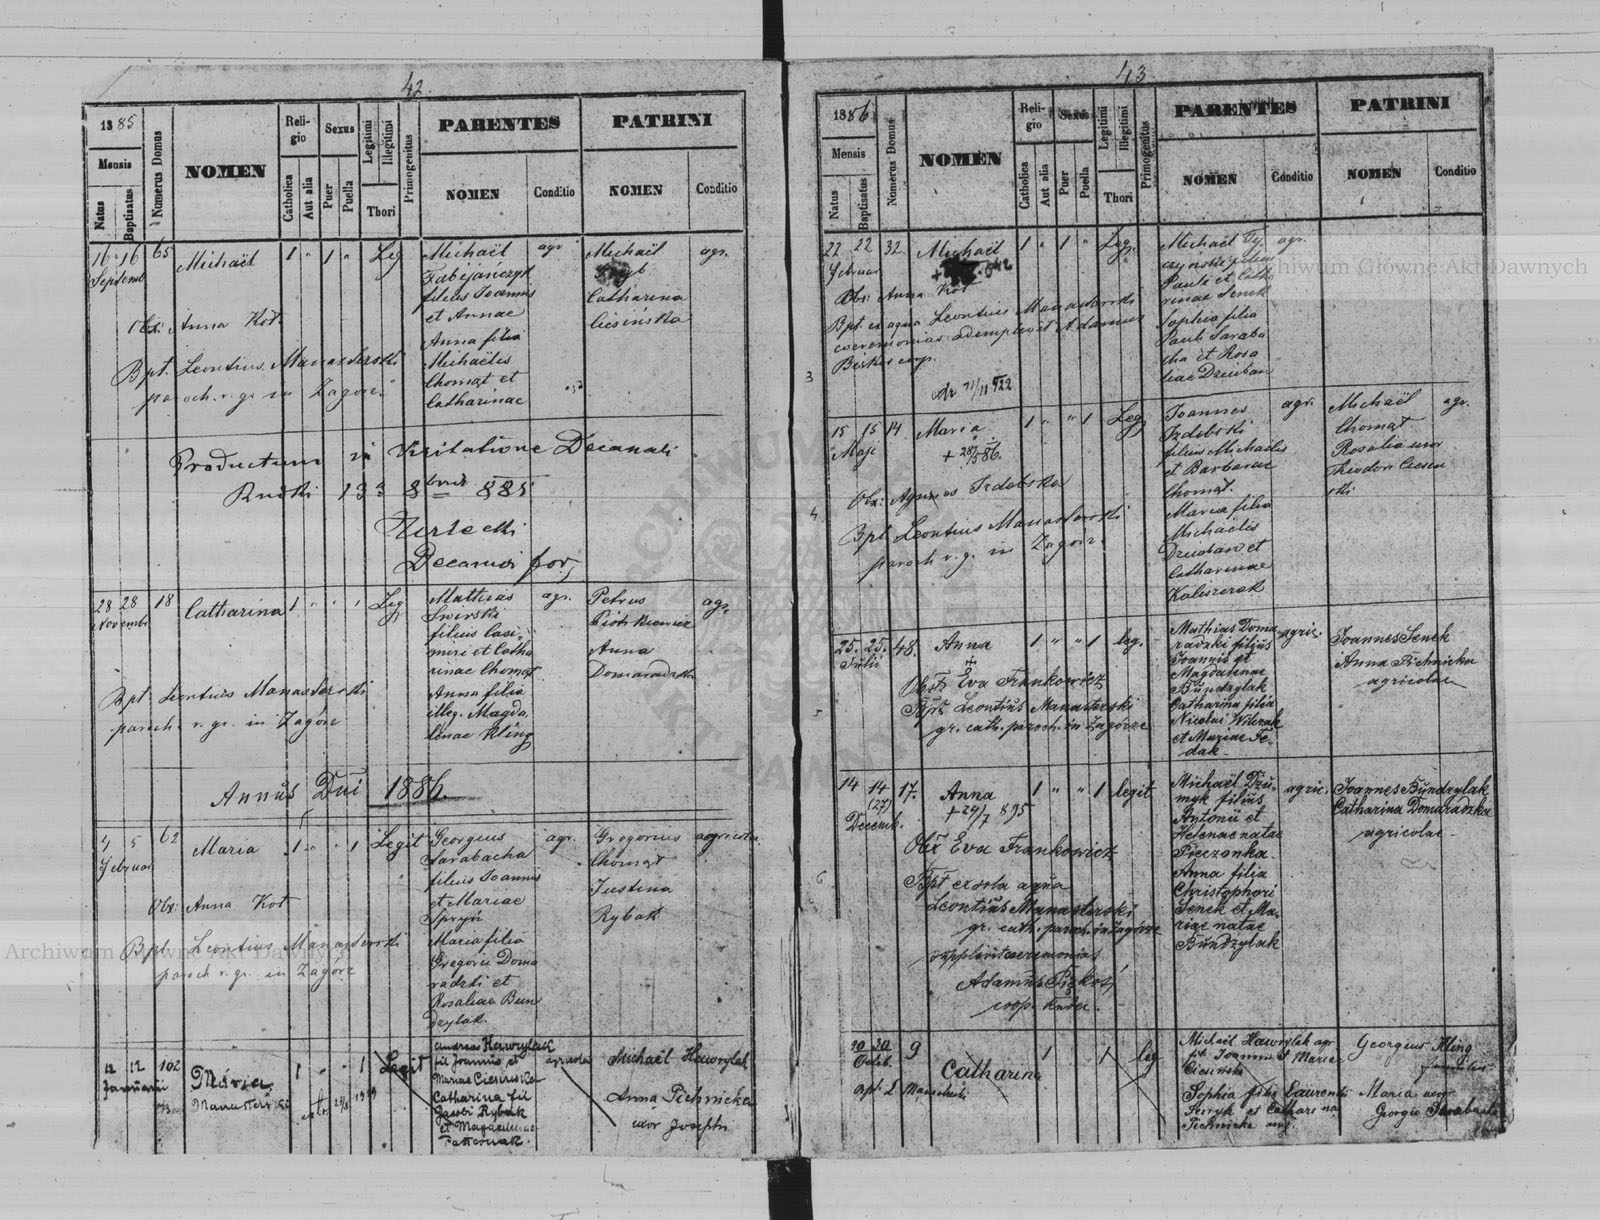 42.
1885
Mensis
Natus
Baptisatus
Numerus Domus
NOMEN
Religio
Catholica
Aut alia
Sexus
Puer
Puella
Legitimi
Illegitimi
Thori
Primogenitus
PARENTES
NOMEN
Conditio
PATRINI
NOMEN
Conditio
16 16 65 Michaël 1 " 1 " Leg
Septemb
Obx: Anna Kot
Bpt. Leontius Manasterski
paroch. r. gr. in Zagórz
Michaël agr
Fabijańczyk
filius Joannis
et Annae
Anna filia
Michaëlis
Chomąt et
Catharinae
Michaël agr.
Catharina
Ciesińska
Productum in Visitatione Decanali
Rudki 13a 8bris 885
Decanus for.
28 28 18 Catharina 1 " " 1 Leg
Novembr
Bpt. Leontius Manasterski
paroch. r. gr. in Zagórz
Mathias agr.
Swirski
filius Casi-
miri et Catha
rinae Chomąt
Anna filia
illeg. Magda
lenae Kling
Petrus agr.
Piotrkiewicz
Anna
Domaradzka
Annus Dni 1886.
4 5 62 Maria 1 " " 1 Legit
Februar
Obx: Anna Kot
Bpt. Leontius Manasterski
paroch r. gr. in Zagórz
Georgius agr.
Sarabacha
filius Joannis
et Mariae
Spryń
Maria filia
Gregorii Doma
radzki et
Rosaliae Bun
dzylak.
Gregorius agricola
Chomąt
Justina
Rybak
12 12 102 Maria 1 " " 1 Legit
Januarii
Manasterski
Andreas Hawrylak agricola
fil Joannis et
Mariae Ciesinska
Catharina fil
Jacobi Rybak
et Magdalenae
Michaël Hawrylak
Anna Pichnicka
uxor Josephi
43.
1886
Mensis
Natus
Baptisatus
Numerus Domus
NOMEN
Religio
Catholica
Aut alia
Sexus
Puer
Puella
Legitimi
Illegitimi
Thori
Primogenitus
PARENTES
NOMEN
Conditio
PATRINI
NOMEN
Conditio
22 22 32 Michaël 1 " 1 " Leg.
Februar
Obx: Anna Kot
Bpt. ex aqua Leontius Manasterski
coeremonias adimplevit Adamus
coop.
Michaël agr.
Pauli et Catha
rinae Senek
Sophia filia
Pauli Saraba
cha et Rosa
liae Dziuban
3
15 15 14 Maria 1 " " 1 Leg
Maji
+ 28/5 86.
Obx: Agnes Izdebska
Bpt Leontius Manasterski
paroch r. g. in Zagórz
Joannes agr.
Izdebski
filius Michaelis
et Barbarae
Chomąt.
Maria filia
Michaëlis
Dziuban et
Catharinae
Kaliszczak
Michaël agr.
Chomąt
Rosalia uxor
Theodori Ciesiń
ski
4
25. 25. 48. Anna 1 " " 1 leg.
Julii
Obst. Eva Frankowicz
Bpt. Leontius Manasterski
gr. cath. paroch. in Zagórze
Mathias Doma agric.
radzki filius
Joannis et
Magdalenae
Bundzylak
Catharina filia
Nicolai Wilczak
et Mariae Fe-
dak.
Joannes Senek
Anna Pichnicka
agricolae
5
14 14 17. Anna 1 " " 1 legit
(27)
Decemb.
+ 24/7 895
Obx Eva Frankowicz
Bpt ex sola aqua
Leontius Manasterski
gr. cath. paroch. in Zagórze
supplevit caeremonias
coop. Rudec.
Michaël Dzu- agric.
myk filius
Antonii et
Helenae natae
Pieczonka.
Anna filia
Christophori
Senek et Ma-
riae natae
Bundzylak
Joannes Bundzylak
Catharina Domaradzka
agricolae
6
20 20 9 Catharina 1 1 leg
Octob.
Michaël Hawrylak agr
fil. Joannis et Mariae
Ciesińska
Sophia filia Laurentii
et Catharina
Pichnicka
Georgius Kling
Maria uxor
Georgii Sarabacha
Archiwum Główne Akt Dawnych
Archiwum Główne Akt Dawnych